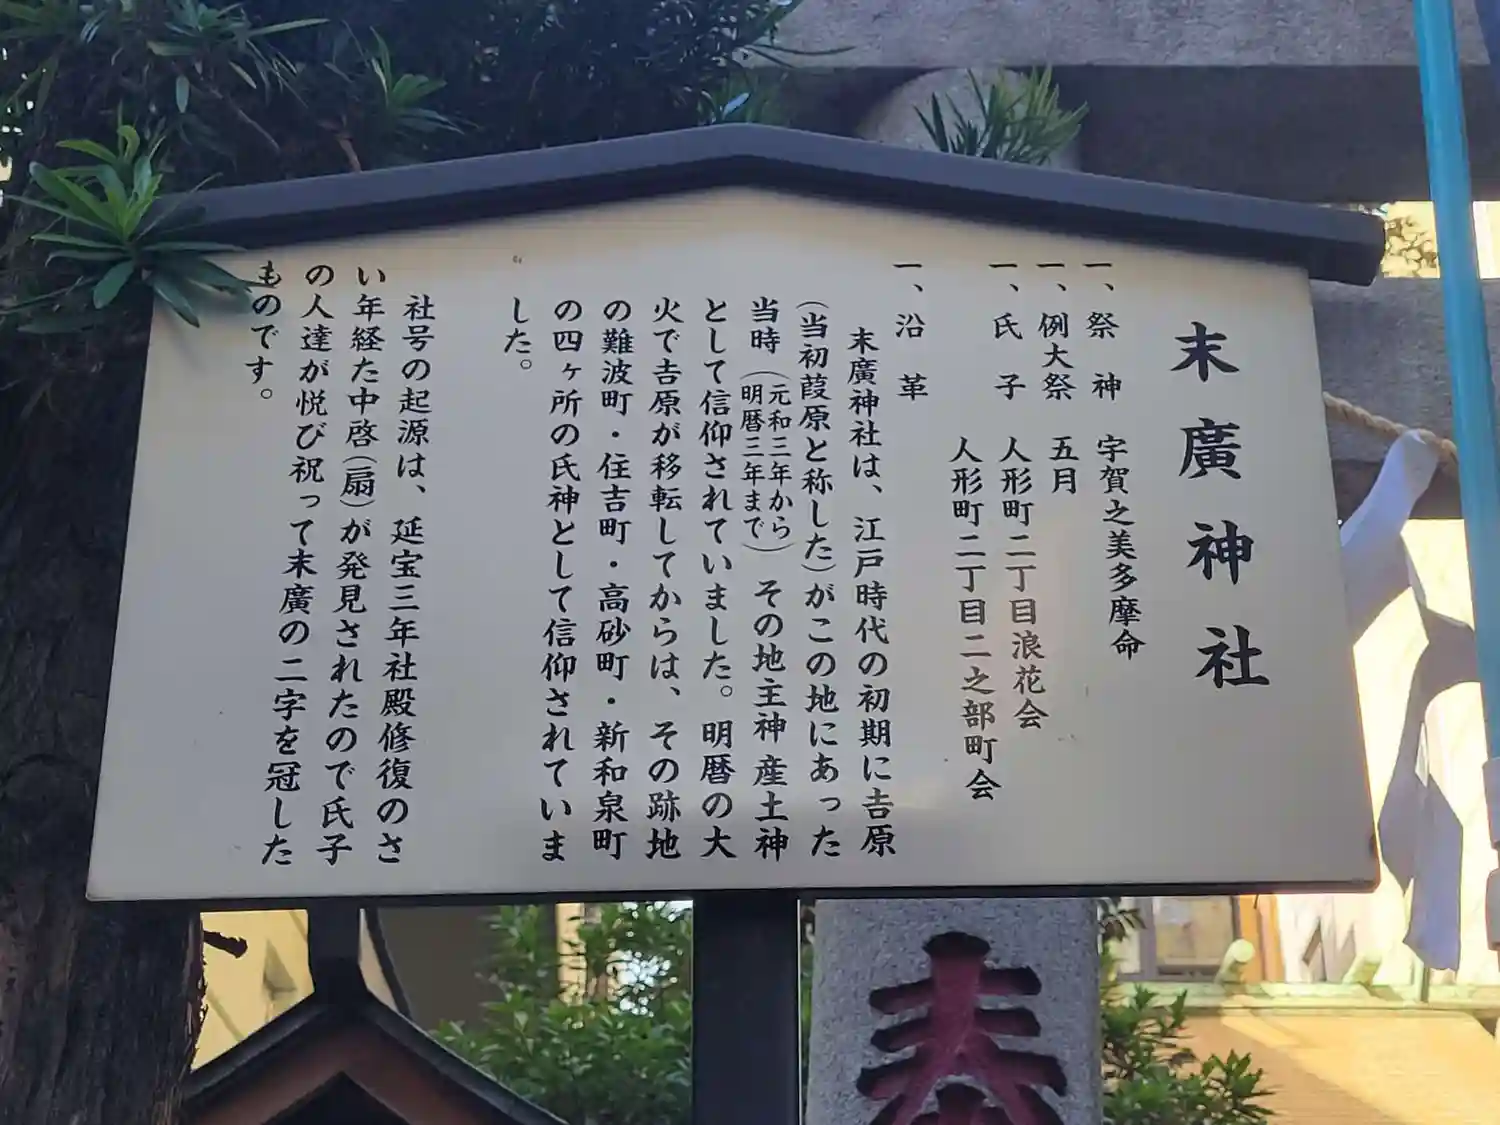 末廣神社
一、祭　神　宇賀之美多摩命
一、例大祭　五月
一、氏　子　人形町二丁目浪花会
人形町二丁目二之部町会
一、沿　革
末廣神社は、江戸時代の初期に吉原
（当初葭原と称した）がこの地にあった
当時（元和三年から明暦三年まで）その地主神産土神
として信仰されていました。明暦の大
火で吉原が移転してからは、その跡地
の難波町・住吉町・高砂町・新和泉町
の四ヶ所の氏神として信仰されていま
した。
社号の起源は、延宝三年社殿修復のさ
い年経た中啓（扇）が発見されたので氏子
の人達が悦び祝って末廣の二字を冠した
ものです。
奉